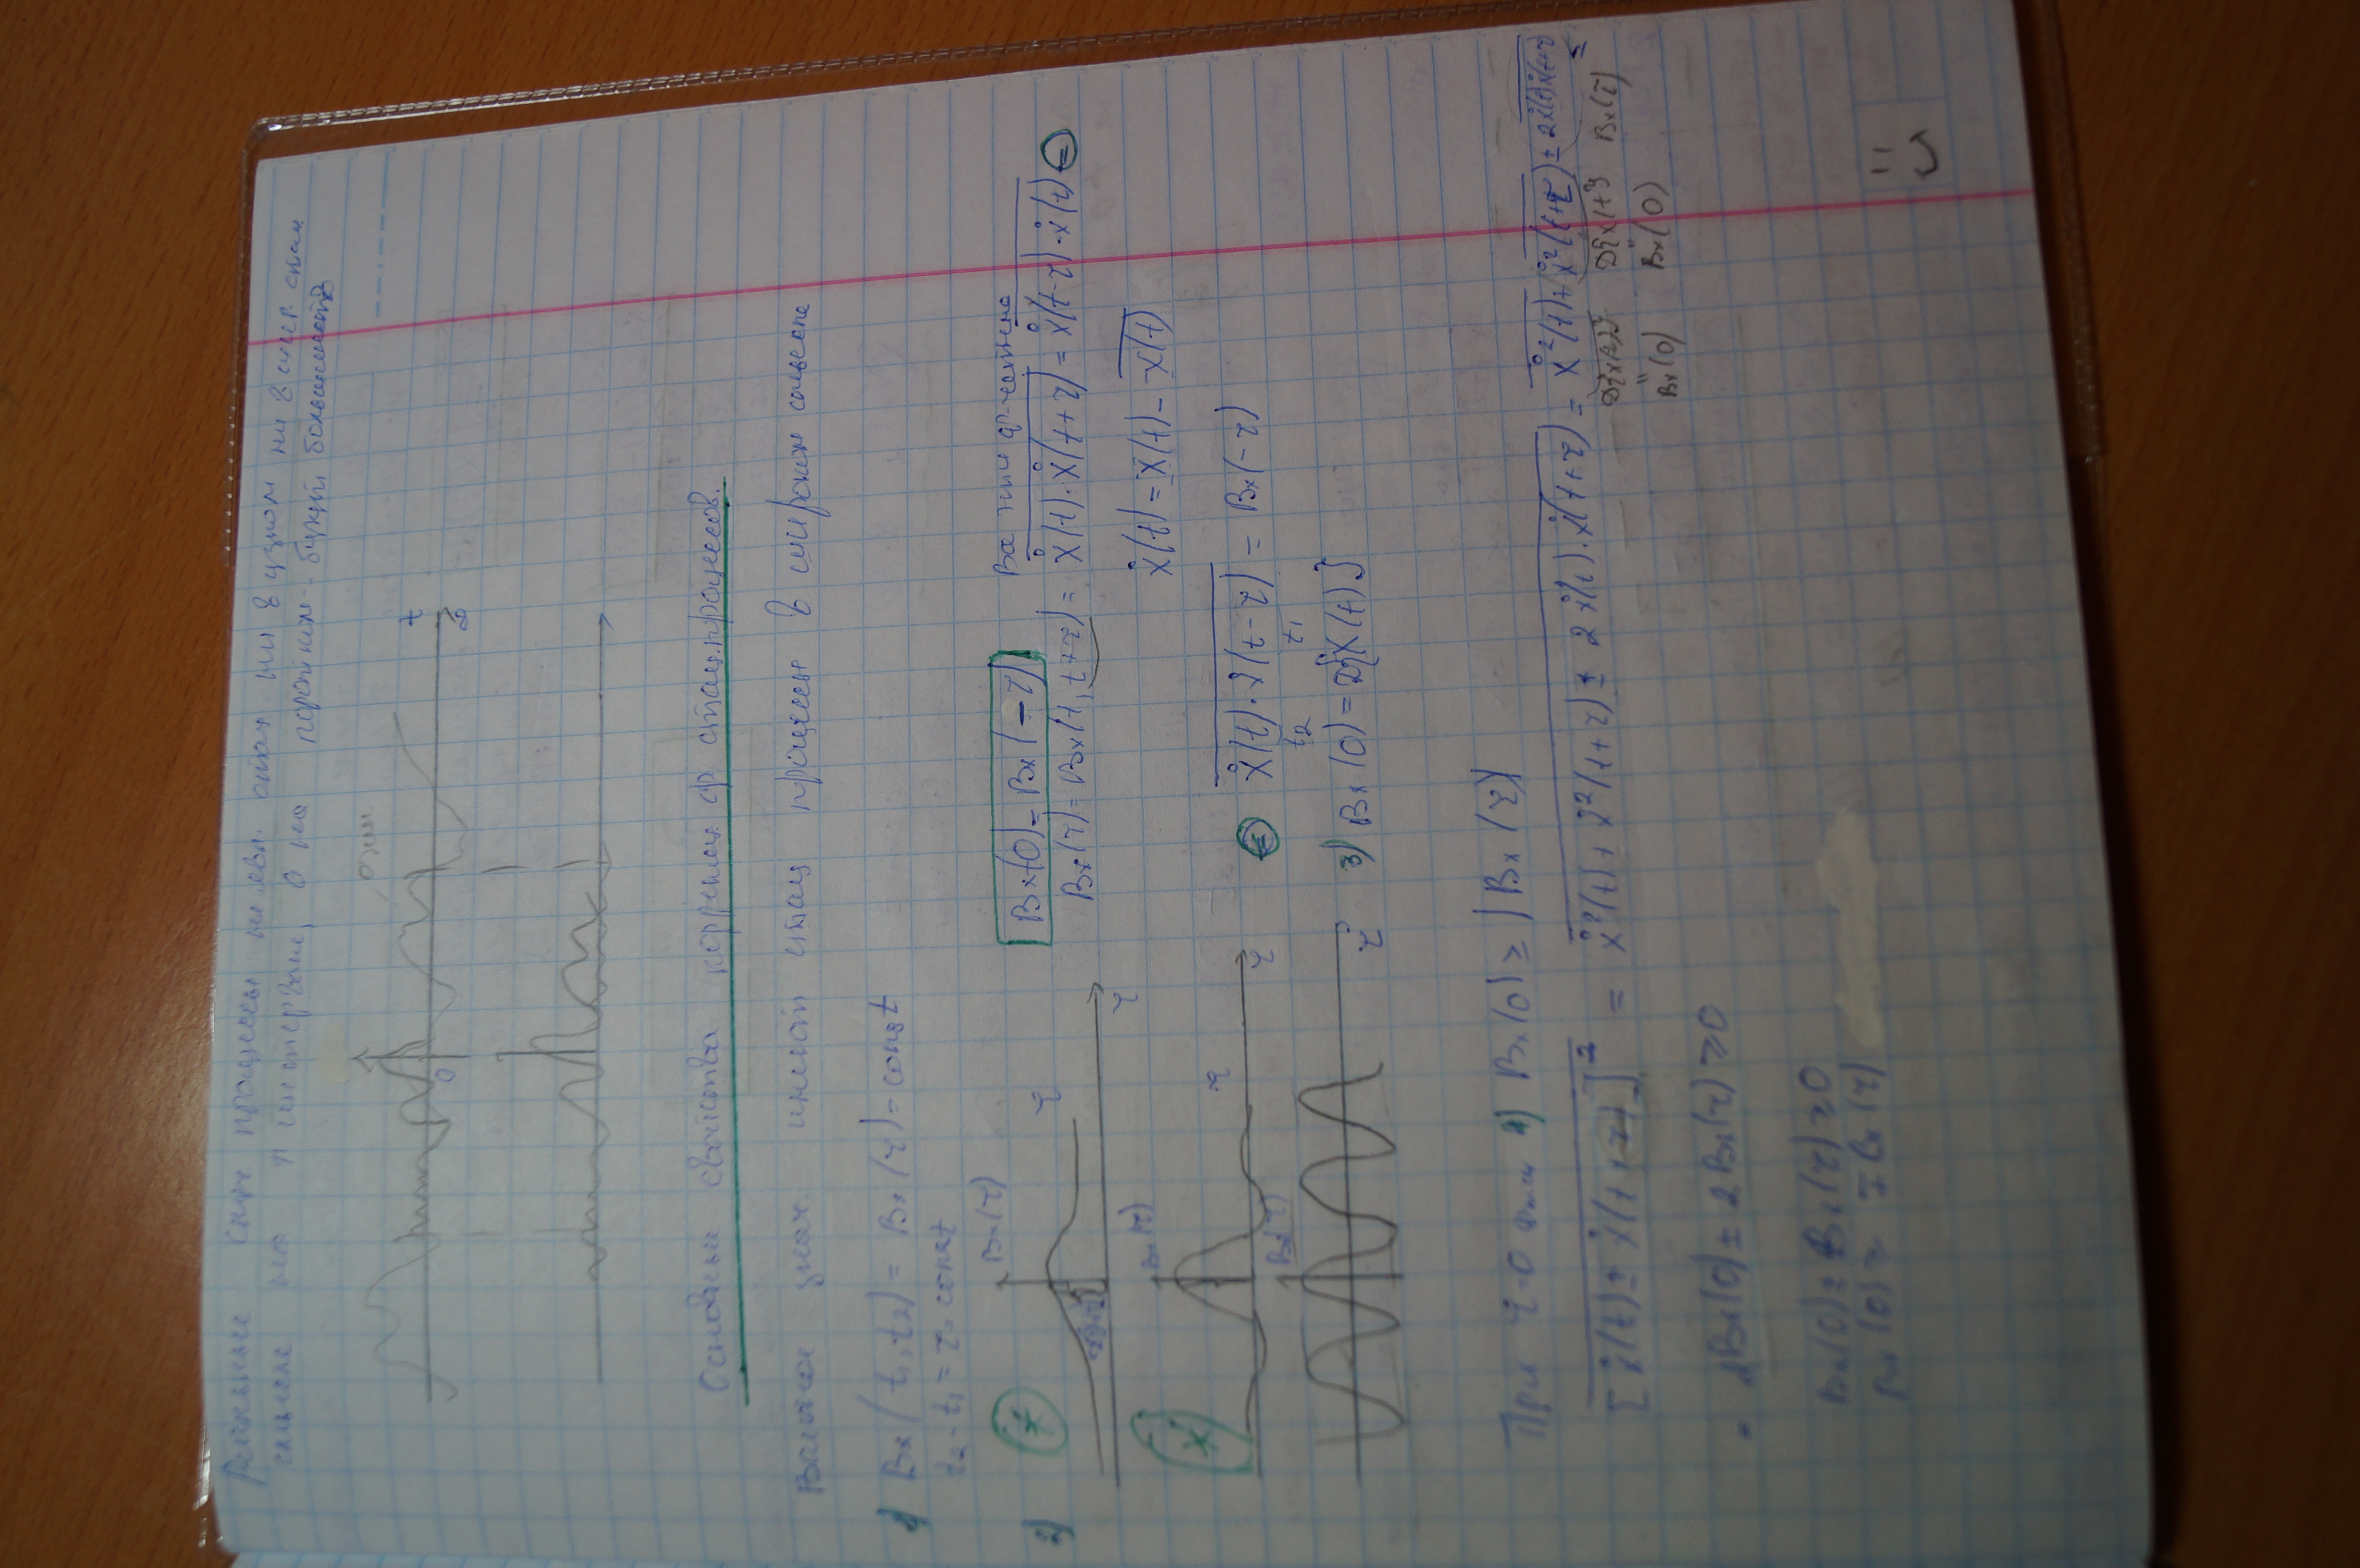 Реальные случ процессы не явл. стац ни в узком ни в шир. смысле
смысле на 1 интервале, а на коротком - будут
0
t
Основные свойства корреляц. ф стац. процессов.
Важное знач. имеют стац процессы в широком смысле
1) Bx(t₁, t₂) = Bx(τ) = const
t₂ - t₁ = τ = const
2)
Bx(τ)
x
τ
τ
Bx(0) = Bx(-τ)
Все эти ф-четные
Bx(τ) = Bx(t, t+τ) = x̊(t)·x̊(t+τ) = x̊(t-τ)·x̊(t) =
Bx(τ)
x
τ
τ
x̊(t) = x(t) - x(t)
= x̊(t)·x̊(t-τ) = Bx(-τ)
t₂ t₁
Bx(τ)
τ
3) Bx(0) = D{X(t)}
При τ=0 4) Bx(0) ≥ |Bx(τ)|
[x̊(t) ± x̊(t+τ)]² = x̊²(t) + x̊²(t+τ) ± 2x̊(t)·x̊(t+τ) = x̊²(t) + x̊²(t+τ) ± 2x̊(t)x̊(t+τ) =
D{x(t)} D{x(t)} Bx(τ)
Bx(0) Bx(0)
= 2Bx(0) ± 2Bx(τ) ≥ 0
Bx(0) ± Bx(τ) ≥ 0
Bx(0) ≥ ∓Bx(τ)